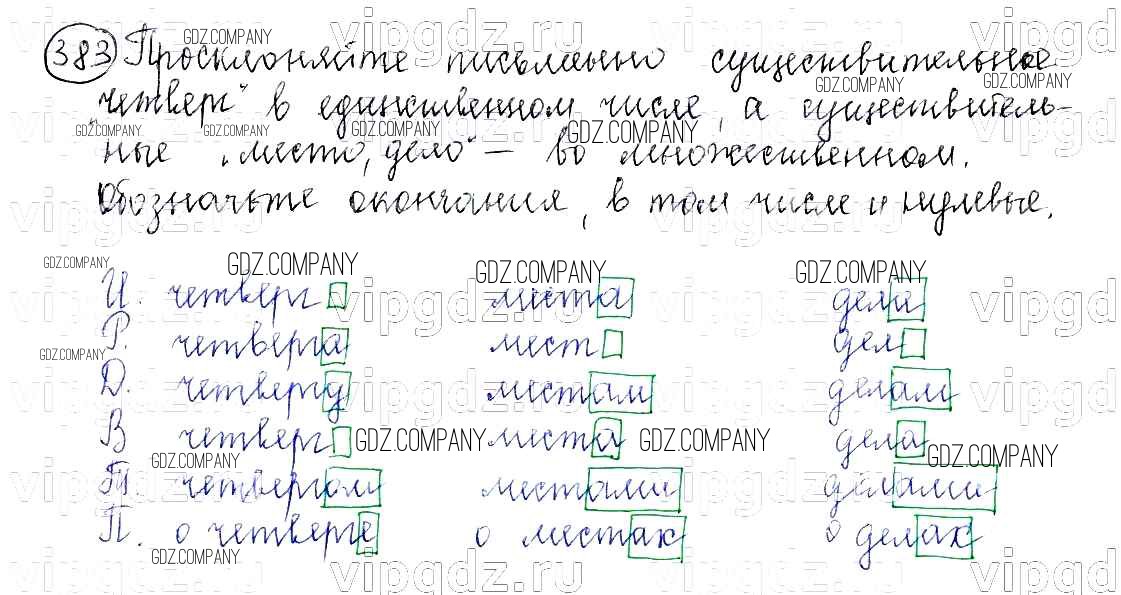 383 Просклоняйте письменно существительное
"четверг" в единственном числе, а существитель-
ные "место, дело" – во множественном.
Обозначьте окончания, в том числе и нулевые.
И. четверг места дела
Р. четверга мест дел
Д. четвергу местам делам
В четверг места дела
Т. четвергом местами делами
П. о четверге о местах о делах
GDZ.COMPANY
vipgdz.ru